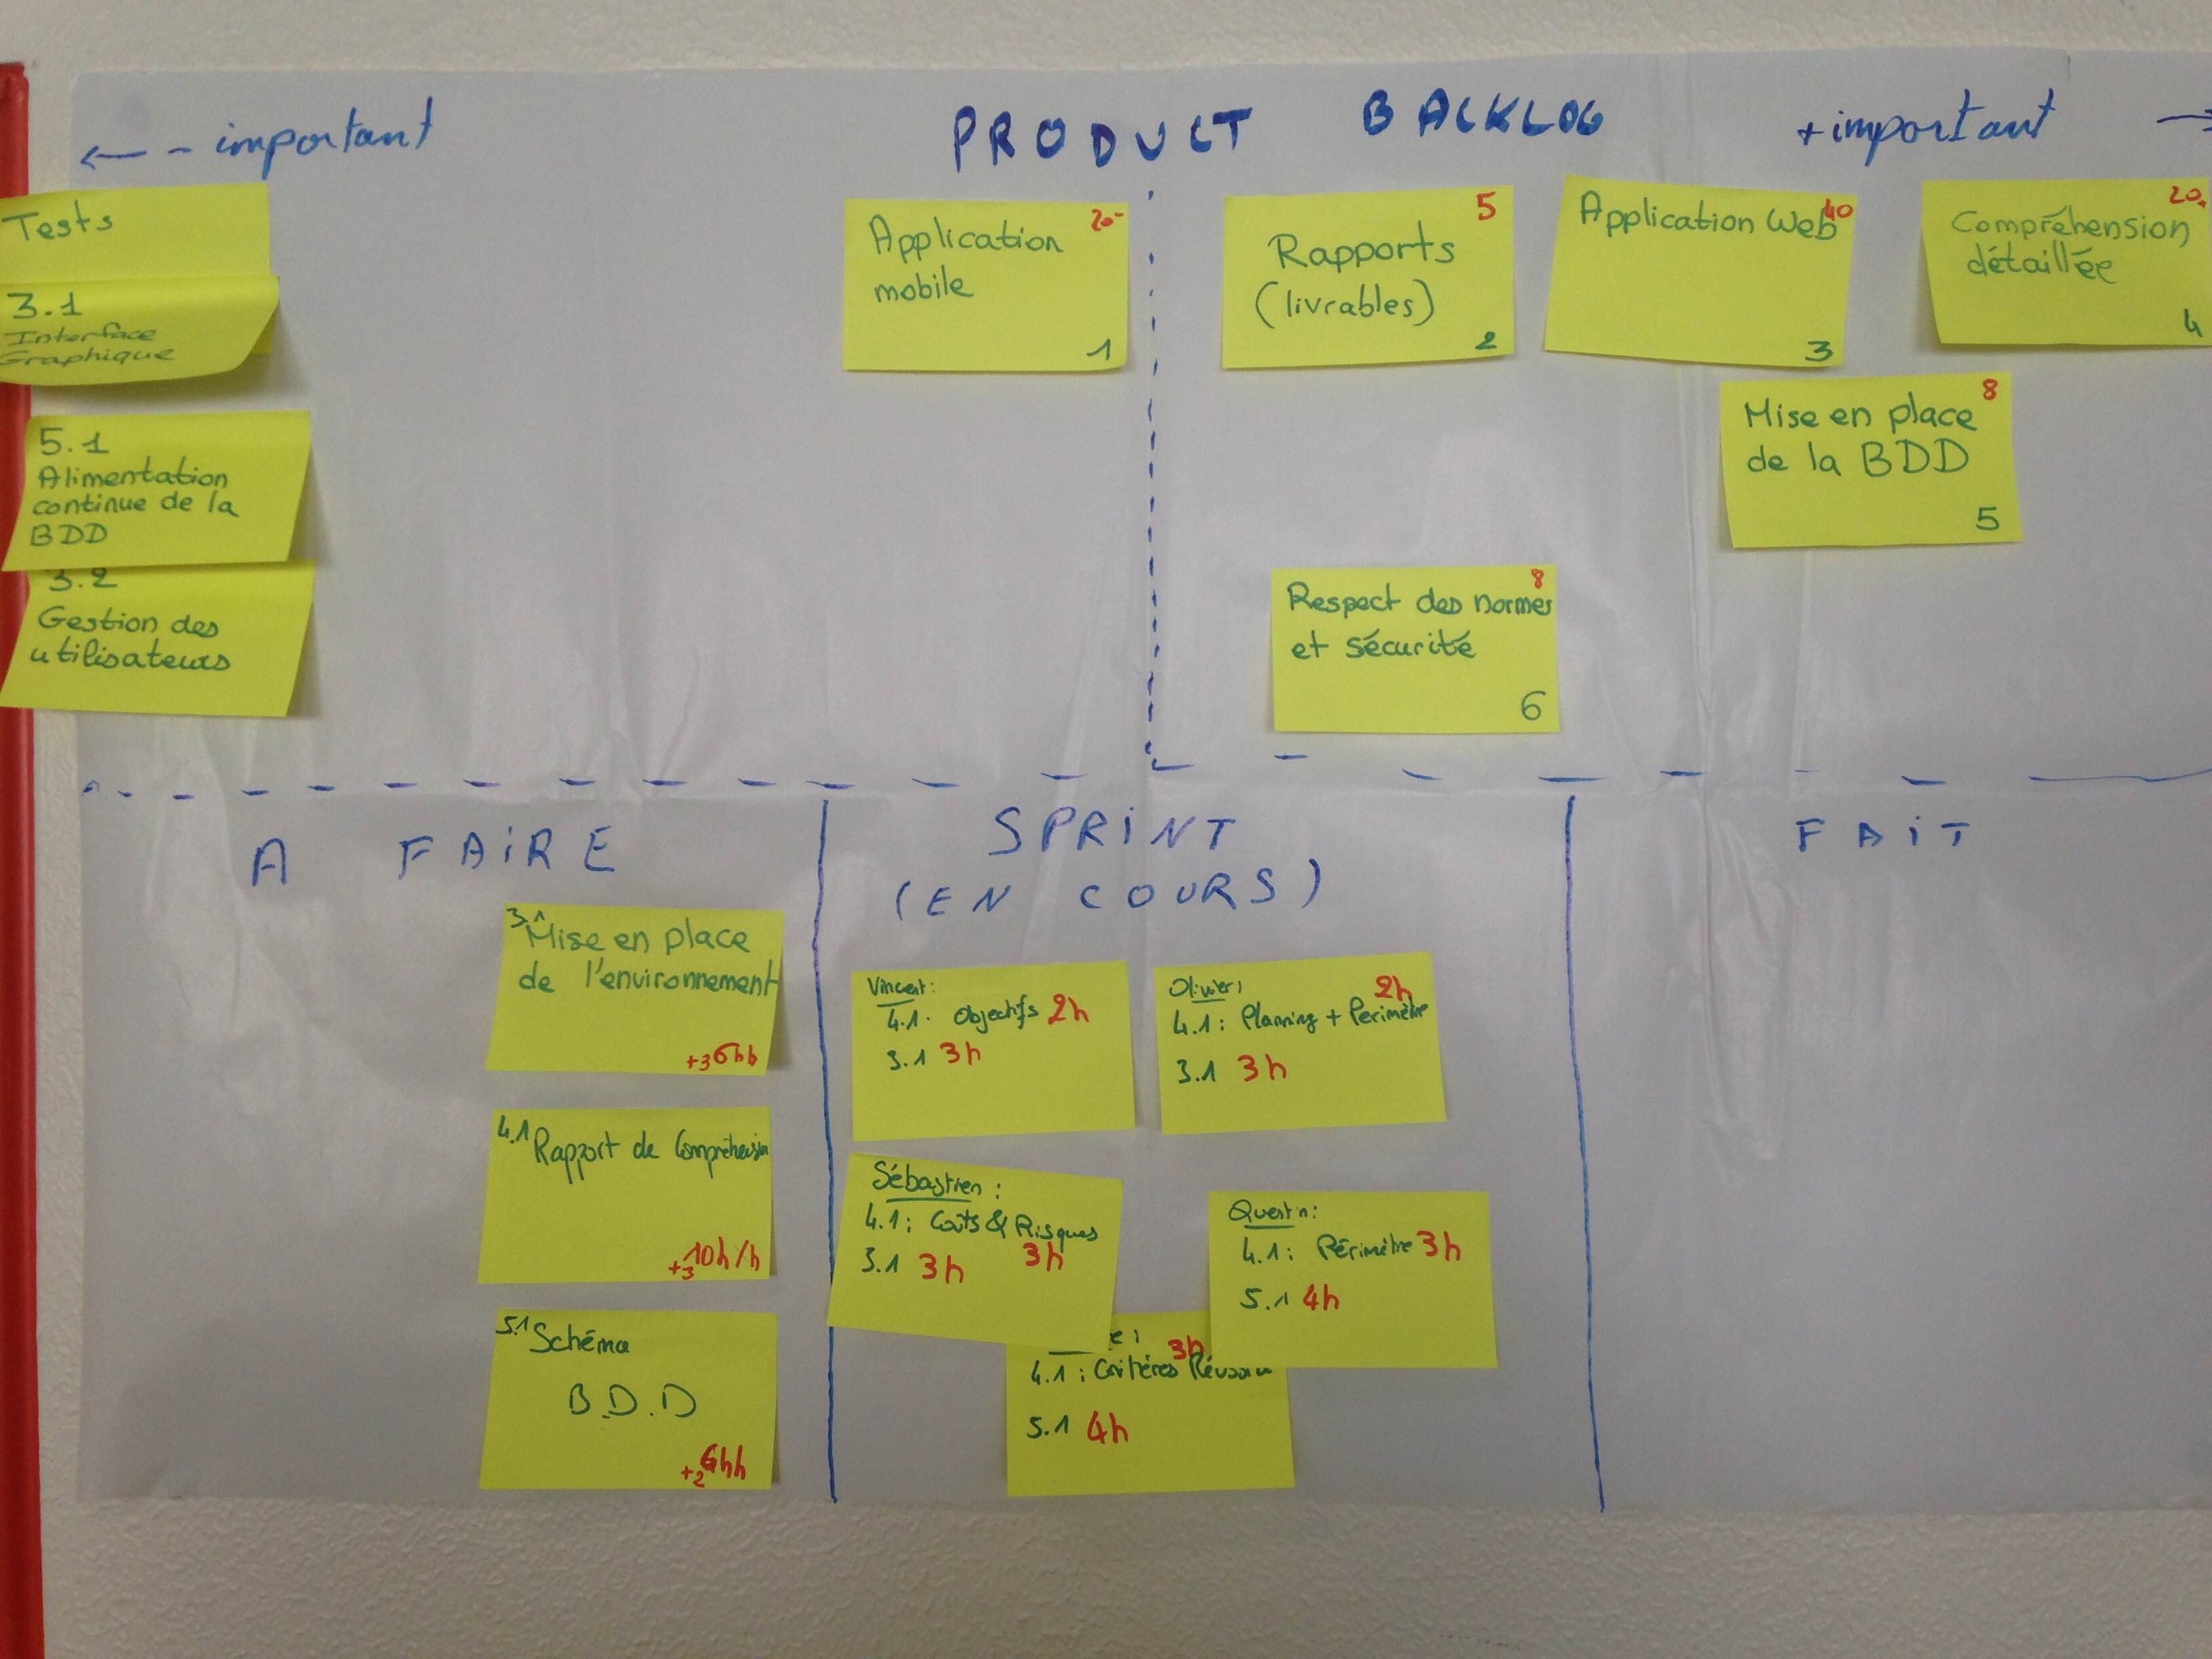 ← - important
PRODUCT BACKLOG
+ important →
Tests
3.1
Interface
Graphique
5.1
Alimentation
continue de la
BDD
3.2
Gestion des
utilisateurs
20-
Application
mobile
1
5
Rapports
(livrables)
2
40
Application Web
3
20
Compréhension
détaillée
4
8
Mise en place
de la BDD
5
8
Respect des normes
et sécurité
6
A FAIRE
3.1
Mise en place
de l'environnement
+3 6hh
4.1 Rapport de Compréhension
+3 10h/h
5.1 Schéma
B.D.D
+2 6hh
SPRINT
(EN COURS)
Vincent:
4.1. Objectifs 2h
3.1 3h
Olivier:
2h
4.1: Planning + Périmètre
3.1 3h
Sébastien:
4.1: Coûts & Risques
3.1 3h 3h
Quentin:
4.1: Périmètre 3h
5.1 4h
e:
3h
4.1: Critères
5.1 4h
FAIT